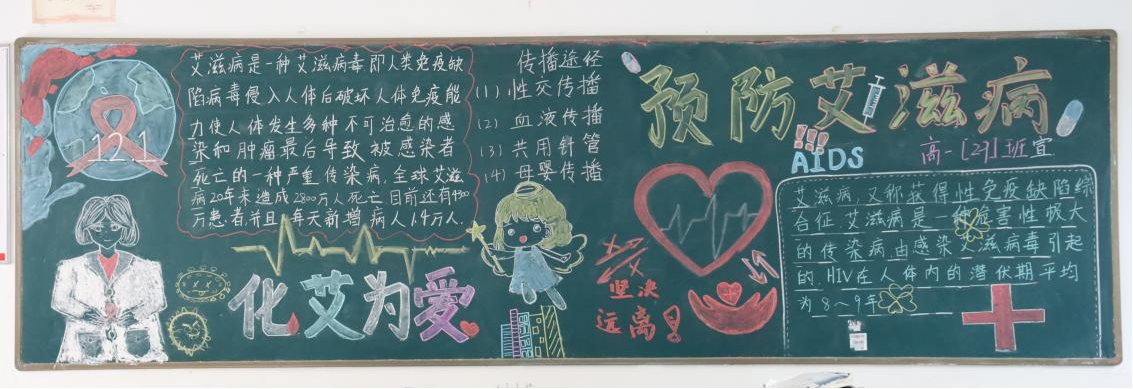 121
艾滋病是一种艾滋病毒即人类免疫缺
陷病毒侵入人体后破坏人体免疫能
力使人体发生多种不可治愈的感
染和肿瘤最后导致被感染者
死亡的一种严重传染病,全球艾滋
病20年来造成2800万人死亡目前还有4300
万患者并且每天新增病人1.4万人.
化艾为爱
传播途径
(1)性交传播
(2)血液传播
(3)共用针管
(4)母婴传播
坚决
远离!
预防艾滋病
!!!
AIDS
高一[27]班宣
艾滋病,又称获得性免疫缺陷综
合征.艾滋病是一种危害性极大
的传染病,由感染艾滋病毒引起
的,HIV在人体内的潜伏期平均
为8~9年